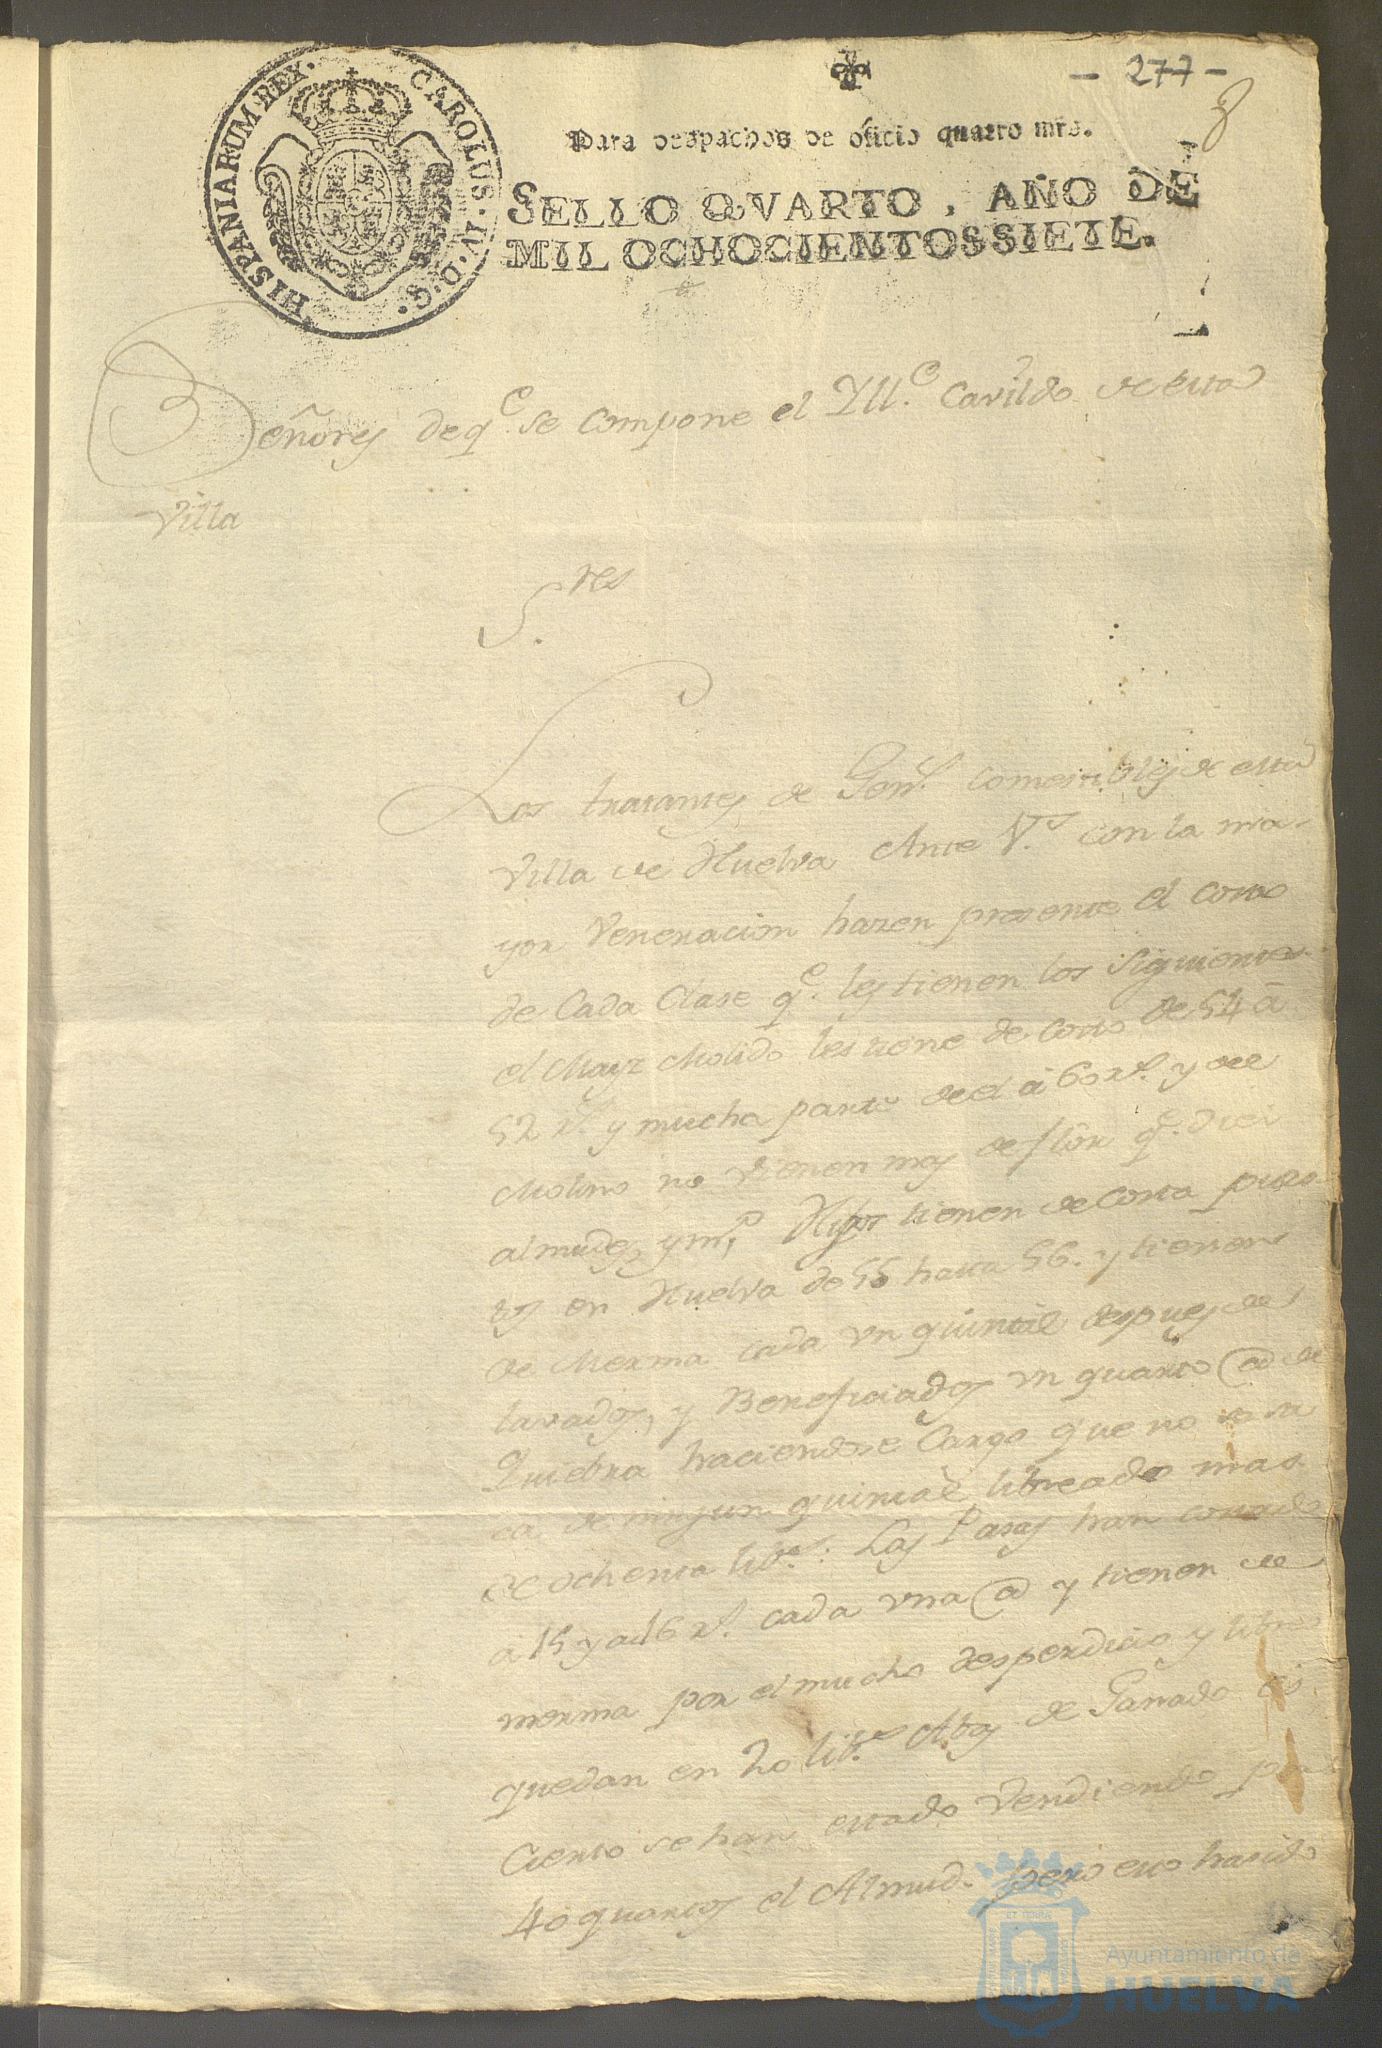 - 277 -
HISPANIARUM·REX· CAROLUS·IV·D·G·
Para despachos de oficio quatro mrs.
SELLO QVARTO, AÑO DE
MIL OCHOCIENTOS SIETE.
Señores de q.e se compone el Yll.e Cavildo de esta
Villa
S.res
Los tratantes de Gen.s comestibles de esta
Villa de Huelva Ante V.s con la ma-
yor Veneracion hazen presente el costo
de Cada Clase q.e les tienen los Siguientes
el Mayz Molido les tiene de costo de 54 â
52 r.s y mucha parte de el â 60 r.s y de el
Molino no vienen mas de flor q.e diez
almudes y m.o tienen de costa pues-
tos en Huelva de 55 hasta 56. y tienen
de Merma cada vn quintal despues de
lavados, y Beneficiados vn quarto @ de
Quiebra haciendose Cargo que no se sa
ca de ningun quintal libreado mas
de ochenta lib.s: Las Pasas han costado
a 15 y a 16 r.s cada vna @ y tienen de
merma por el mucho desperdicio y libres
quedan en 20 lib.s Abas de Ganado es
Cierto se han estado Vendiendo
40 quartos el Almud. pero eso ha sido
Ayuntamiento de
HUELVA